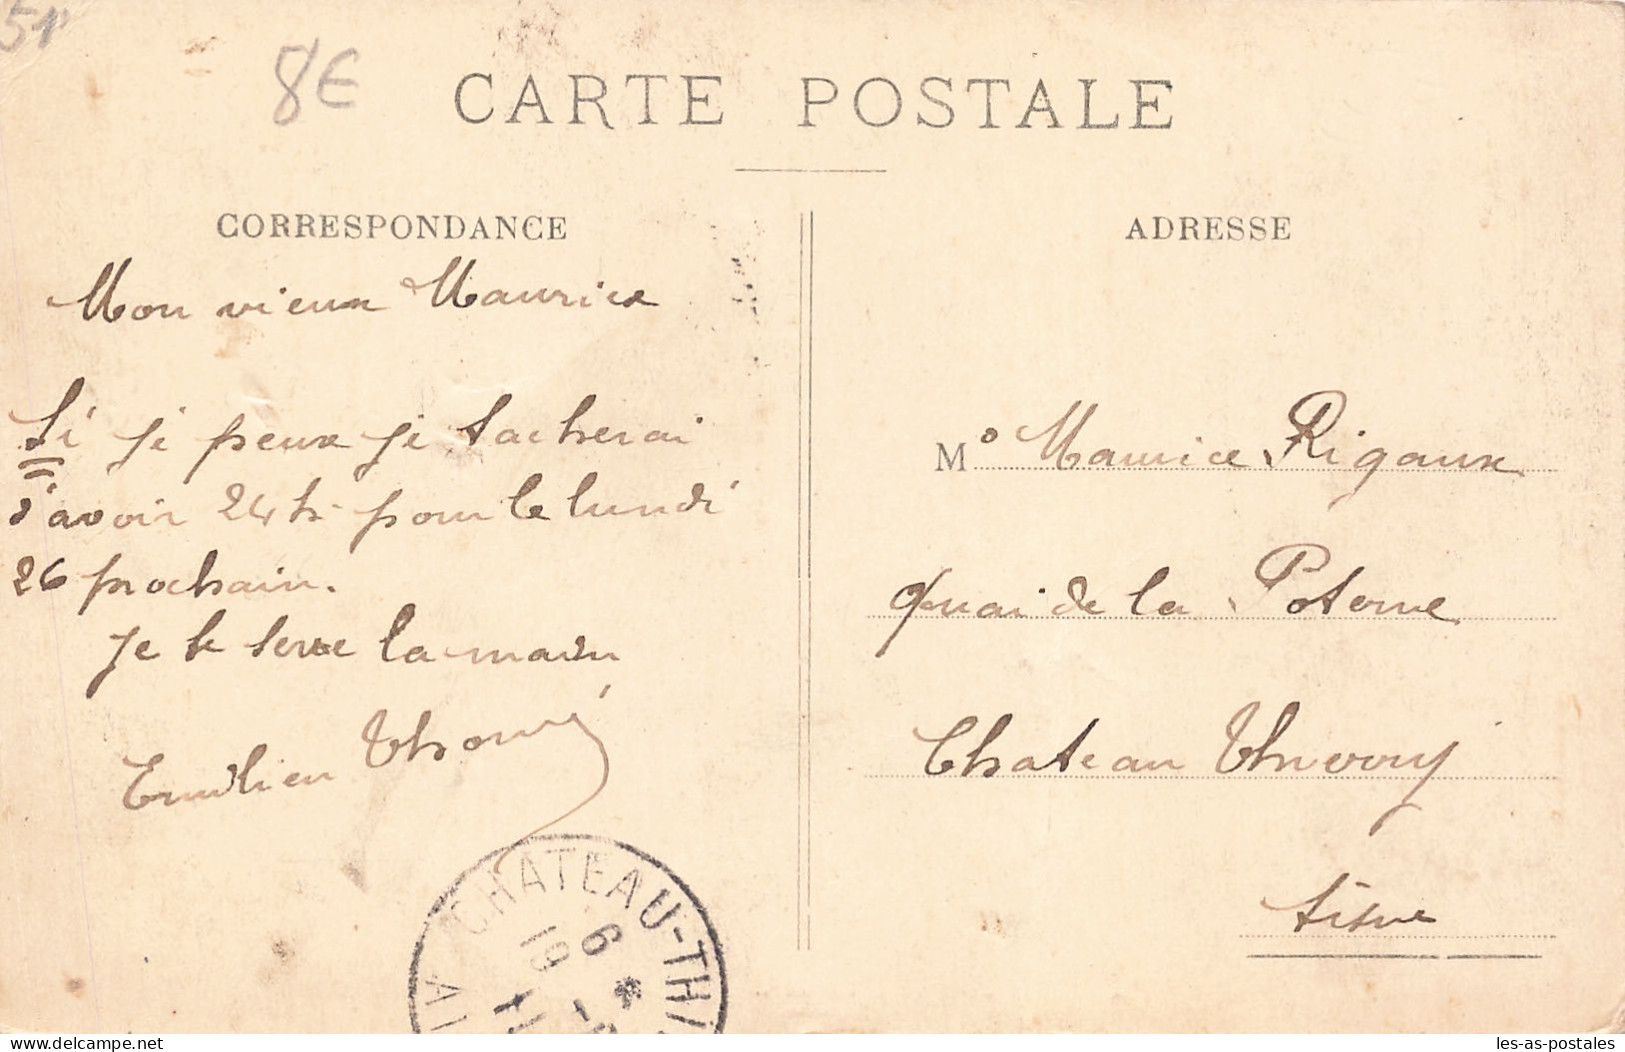 51
8€
CARTE POSTALE
CORRESPONDANCE
Mon vieux Maurice
Si je peux je tacherai
d'avoir 24h pour le lundi
26 prochain.
Je te serre la main
Emilien Thomé
ADRESSE
M° Maurice Rigaux
Quai de la Poterne
Chateau Thierry
Aisne
CHATEAU-TH
6 *
19
AI
Delcampe.net
les-as-postales